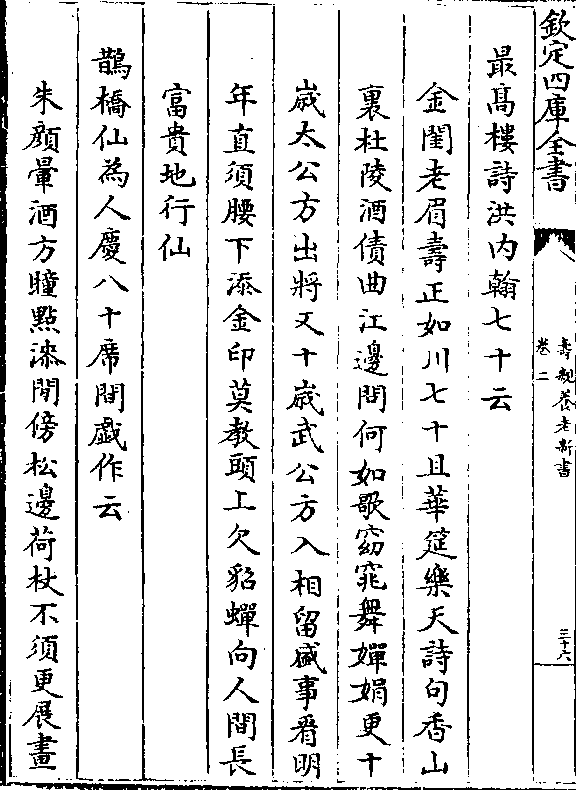 欽定四庫全書
壽親養老新書
卷二
三十六
最髙樓詩洪内翰七十云
金閨老眉壽正如川七十且華筵樂天詩句香山
裏杜陵酒債曲江邊問何如歌窈窕舞嬋娟更十
歲太公方出將又十歲武公方入相留盛事看明
年直須腰下添金印莫教頭上欠貂蟬向人間長
富貴地行仙
鵲橋仙為人慶八十席間戯作云
朱顔暈酒方瞳點漆閒傍松邊荷杖不須更展畫